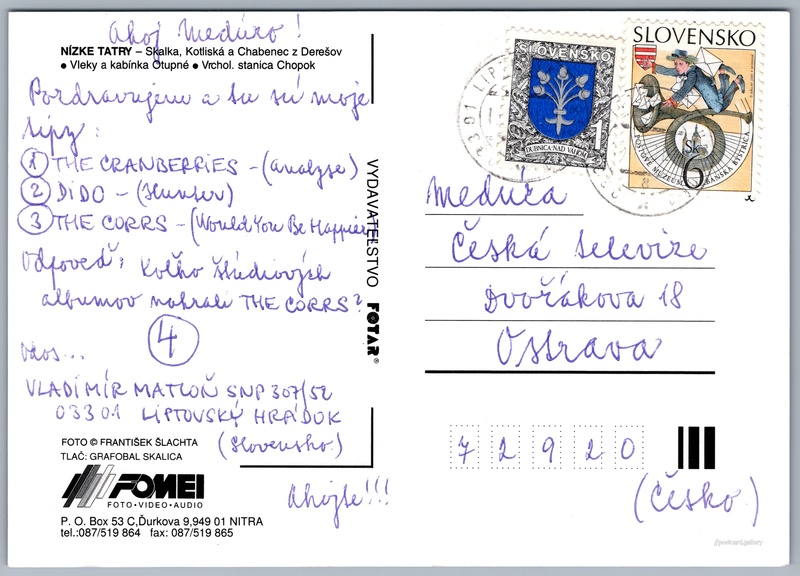 Ahoj Medúzo!
NÍZKE TATRY – Skalka, Kotliská a Chabenec z Derešov
• Vleky a kabínka Otupné • Vrchol. stanica Chopok
Pozdravujeme a tu sú moje
tipy:
1 THE CRANBERRIES - (Analyse)
2 DIDO - (Hunter)
3 THE CORRS - (Would You Be Happier
Odpoveď: Koľko štúdiových
albumov nahrali THE CORRS?
4
VLADIMÍR MATLOŇ SNP 307/52
033 01 LIPTOVSKÝ HRÁDOK
(Slovensko)
FOTO © FRANTIŠEK ŠLACHTA
TLAČ: GRAFOBAL SKALICA
FOMEI
FOTO • VIDEO • AUDIO
P. O. Box 53 C,Ďurkova 9,949 01 NITRA
tel.:087/519 864 fax: 087/519 865
Ahojte!!!
VYDAVATEĽSTVO FOTAR®
SLOVENSKO
1
DUBNICA NAD VÁHOM
SLOVENSKO
Sk
6
Medúza
Česká televize
Dvořákova 18
Ostrava
72920
(Česko)
//postcard.gallery